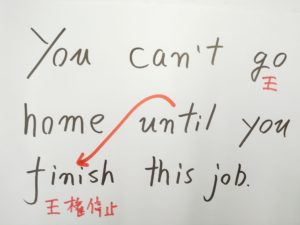 You can't go
王
home until you
finish this job.
王権停止